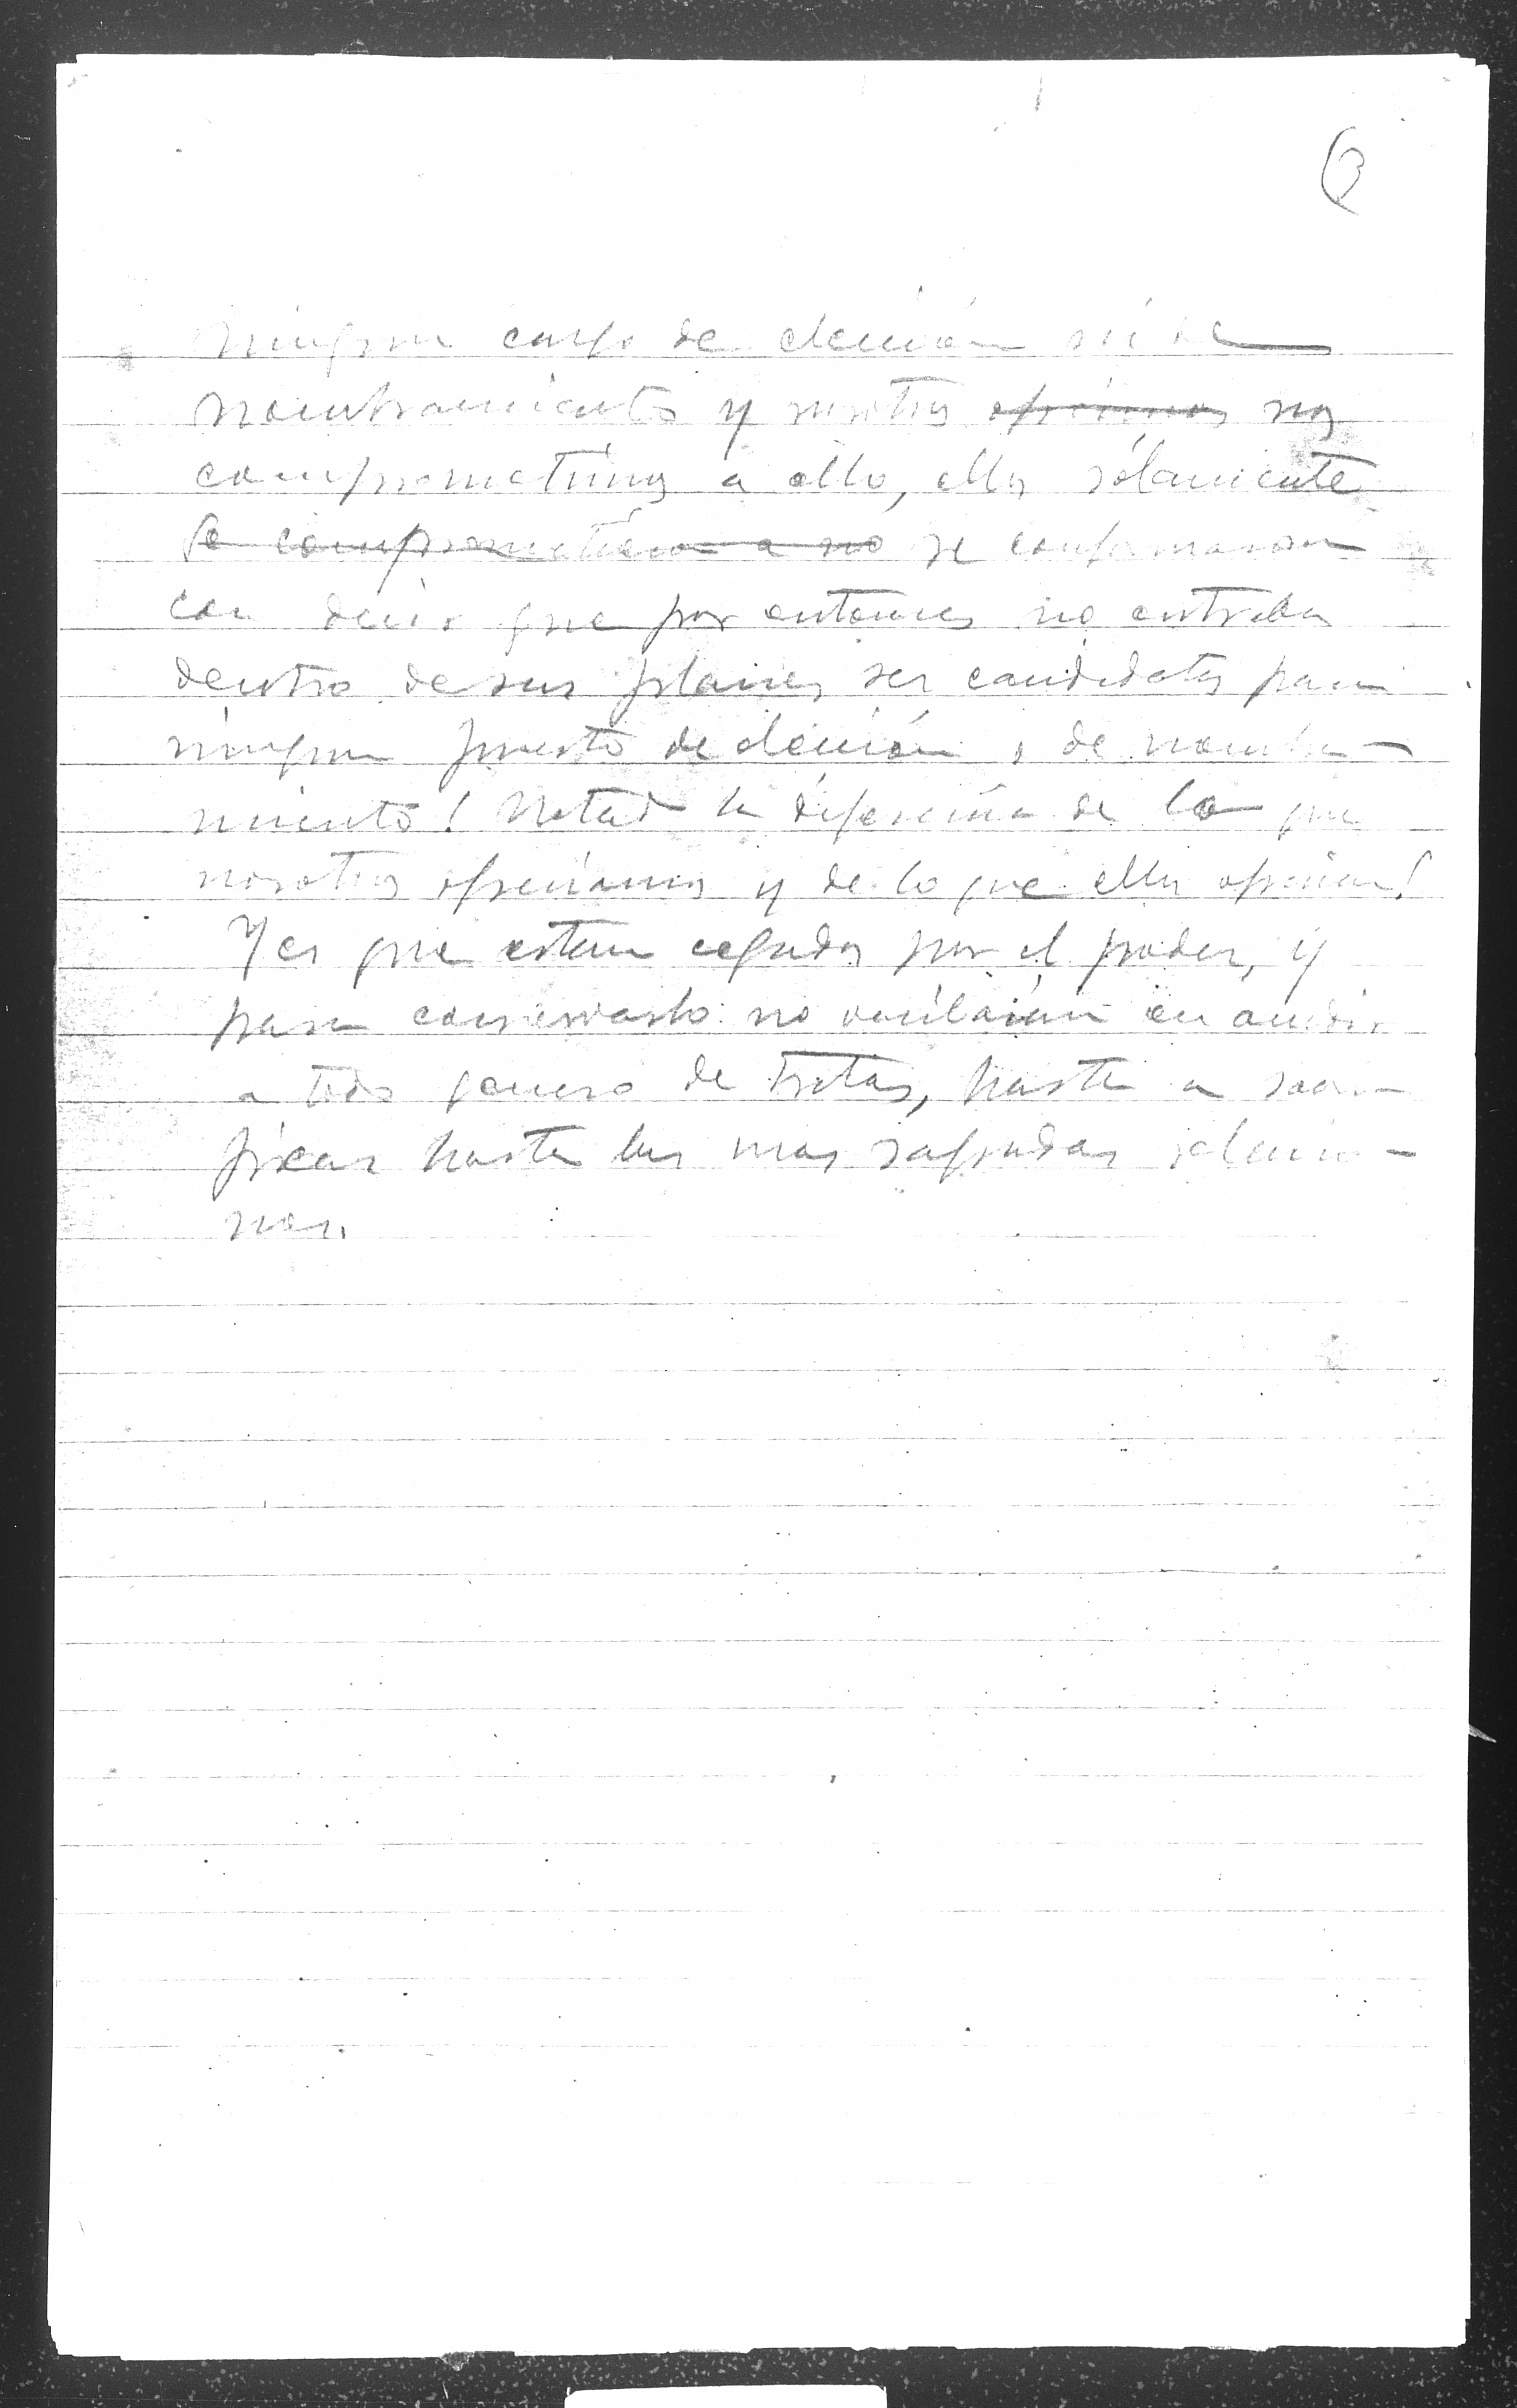 ningun cargo de elección ni de
nombramiento y nosotros ofrecimos nos
comprometimos a ello, ellos sólamente
se comprometieron a no se conformaron
con decir que por entonces no entraba
dentro de sus planes ser candidatos para
ningun puesto de elección o de nombra-
miento! Notad la diferencia de lo que
nosotros ofreciamos y de lo que ellos ofrecian!
Y es que estan cegados por el poder, y
para conservarlo no vacilarian en acudir
a todo genero de tretas, hasta a sacri-
ficar hasta las mas sagradas
nes.